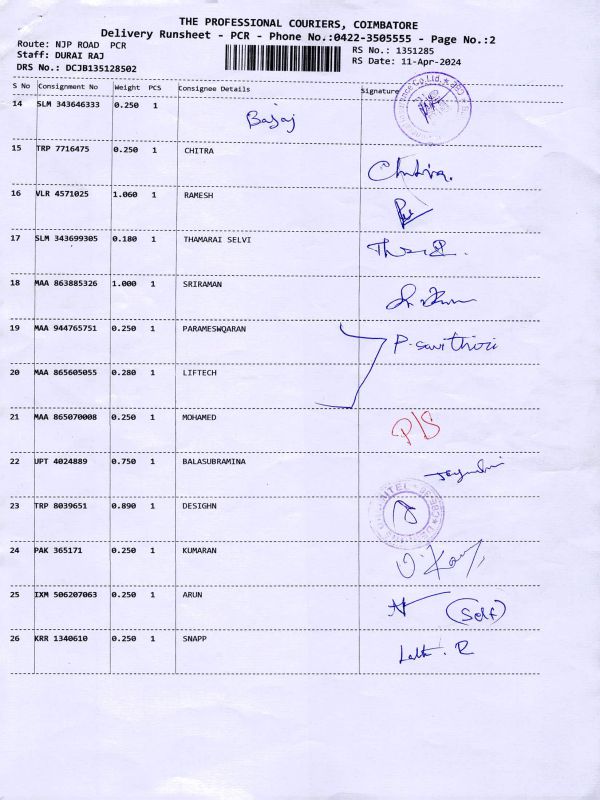 THE PROFESSIONAL COURIERS, COIMBATORE
Delivery Runsheet - PCR - Phone No.:0422-3505555 - Page No.:2
Route: NJP ROAD PCR RS No.: 1351285
Staff: DURAI RAJ RS Date: 11-Apr-2024
DRS No.: DCJB135128502
S No Consignment No Weight PCS Consignee Details Signature
14 SLM 343646333 0.250 1 Bajaj
15 TRP 7716475 0.250 1 CHITRA Chitra.
16 VLR 4571025 1.060 1 RAMESH
17 SLM 343699305 0.180 1 THAMARAI SELVI
18 MAA 863885326 1.000 1 SRIRAMAN
19 MAA 944765751 0.250 1 PARAMESWQARAN P. Savithiri
20 MAA 865605055 0.280 1 LIFTECH
21 MAA 865070008 0.250 1 MOHAMED P/S
22 UPT 4024889 0.750 1 BALASUBRAMINA
23 TRP 8039651 0.890 1 DESIGHN
24 PAK 365171 0.250 1 KUMARAN
25 IXM 506207063 0.250 1 ARUN (Self)
26 KRR 1340610 0.250 1 SNAPP